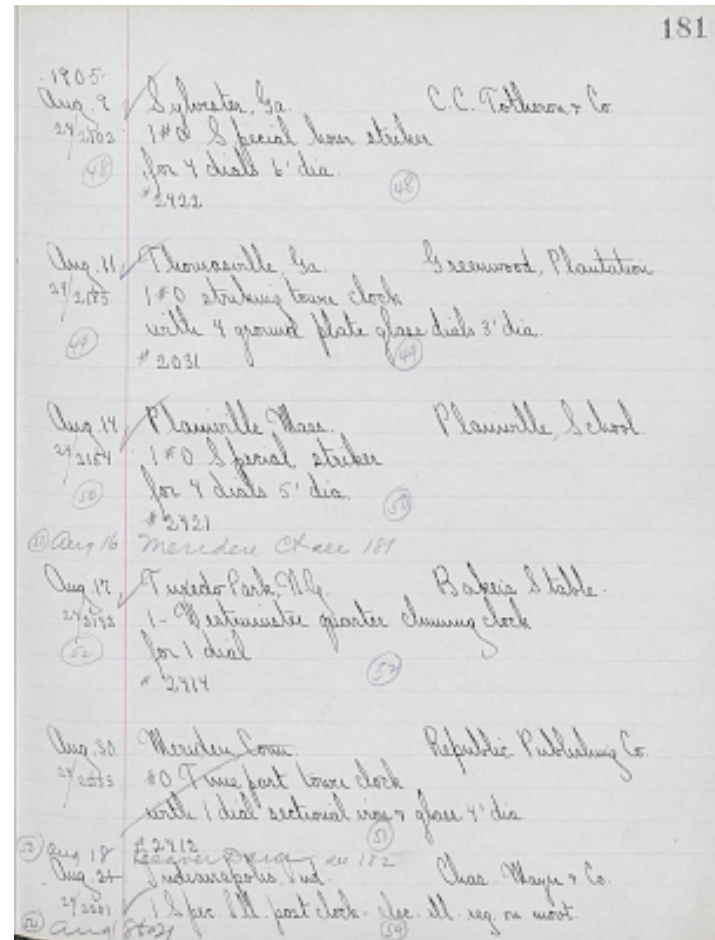 181
-1905-
Aug. 9 Sylvester, Ga. C.C. Totherow & Co.
24/2802 1 #0 Special hour striker
48 for 4 dials 6' dia. 48
#2422
Aug. 11 Thomasville, Ga. Greenwood, Plantation
1 #0 striking tower clock
49 with 4 ground plate glass dials 3' dia.
#2031 49
Aug. 14 Plainville, Mass. Plainville, School
24/2184 1 #0 Special striker
50 for 4 dials 5' dia. 50
#2421
51 Aug 16 Meriden Ct see 181
Aug. 17 Tuxedo Park, N.Y. Bakers Stable.
1 - Westminster quarter chiming clock
52 for 1 dial 52
#2414
Aug. 30 Meriden, Conn. Republic Publishing Co.
#0 Time part tower clock
with 1 dial sectional iron & glass 4' dia.
#2413 51
53 Aug 18 see 182
Aug. 21 Indianapolis, Ind. Chas. Mayer & Co.
1 Spec. Ill. post clock - elec. ill. reg. on movt.
54 Aug 54